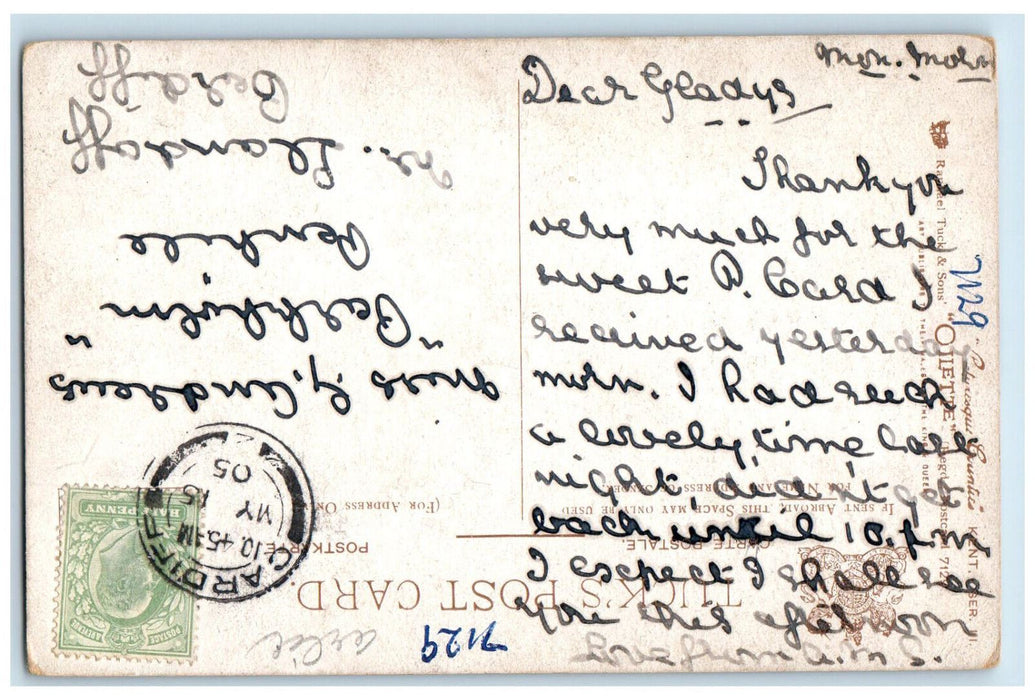 Mon. Morn
Dear Gladys
Thank you
very much for the
sweet P. Card I
received yesterday
morn. I had such
a lovely time last
night, didn't get
back until 10.p.m
I expect I shall see
you this afternoon
Love from A.M.S.
Miss G. Andrews
Penhill
Nr. Llandaff
Cardiff
CARDIFF
10.45 AM
MY 15
05
HALF PENNY
POSTAGE
REVENUE
TUCK'S POST CARD.
CARTE POSTALE
POSTKARTE
(FOR ADDRESS ON
IF SENT ABROAD, THIS SPACE MAY ONLY BE USED
FOR NAME AND ADDRESS OF SENDER.
Raphael Tuck & Sons' "OILETTE"
KENT SER
7129
7129